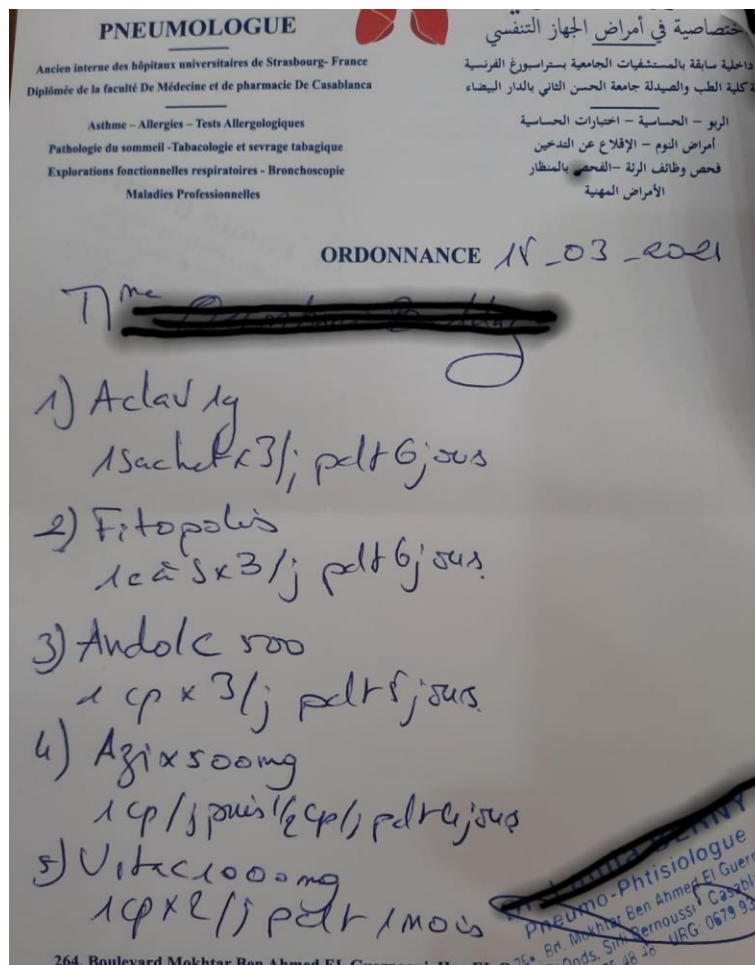 PNEUMOLOGUE
Ancien interne des hôpitaux universitaires de Strasbourg- France
Diplômée de la faculté De Médecine et de pharmacie De Casablanca
Asthme – Allergies – Tests Allergologiques
Pathologie du sommeil -Tabacologie et sevrage tabagique
Explorations fonctionnelles respiratoires - Bronchoscopie
Maladies Professionnelles
ختصاصية في أمراض الجهاز التنفسي
داخلية سابقة بالمستشفيات الجامعية بستراسبورغ الفرنسية
كلية الطب والصيدلة جامعة الحسن الثاني بالدار البيضاء
الربو – الحساسية – اختبارات الحساسية
أمراض النوم – الإقلاع عن التدخين
فحص وظائف الرئة –الفحص بالمنظار
الأمراض المهنية
ORDONNANCE 18-03-2021
Mme
1) Aclav 1g
1 sachet x 3/j pdt 6 jours
2) Fitopolis
1 c à s x 3/j pdt 6 jours
3) Andol C 500
1 cp x 3/j pdt 5 jours
4) Azix 500mg
1 cp/j puis 1/2 cp/j pdt 4 jours
5) Vita C 1000mg
1 cp x 2/j pdt 1 mois
Pneumo-Phtisiologue
Bd. Mokhtar Ben Ahmed El Guern
Sidi Bernoussi Casabl
URG: 0679 93
264, Boulevard Mokhtar Ben Ahmed EL